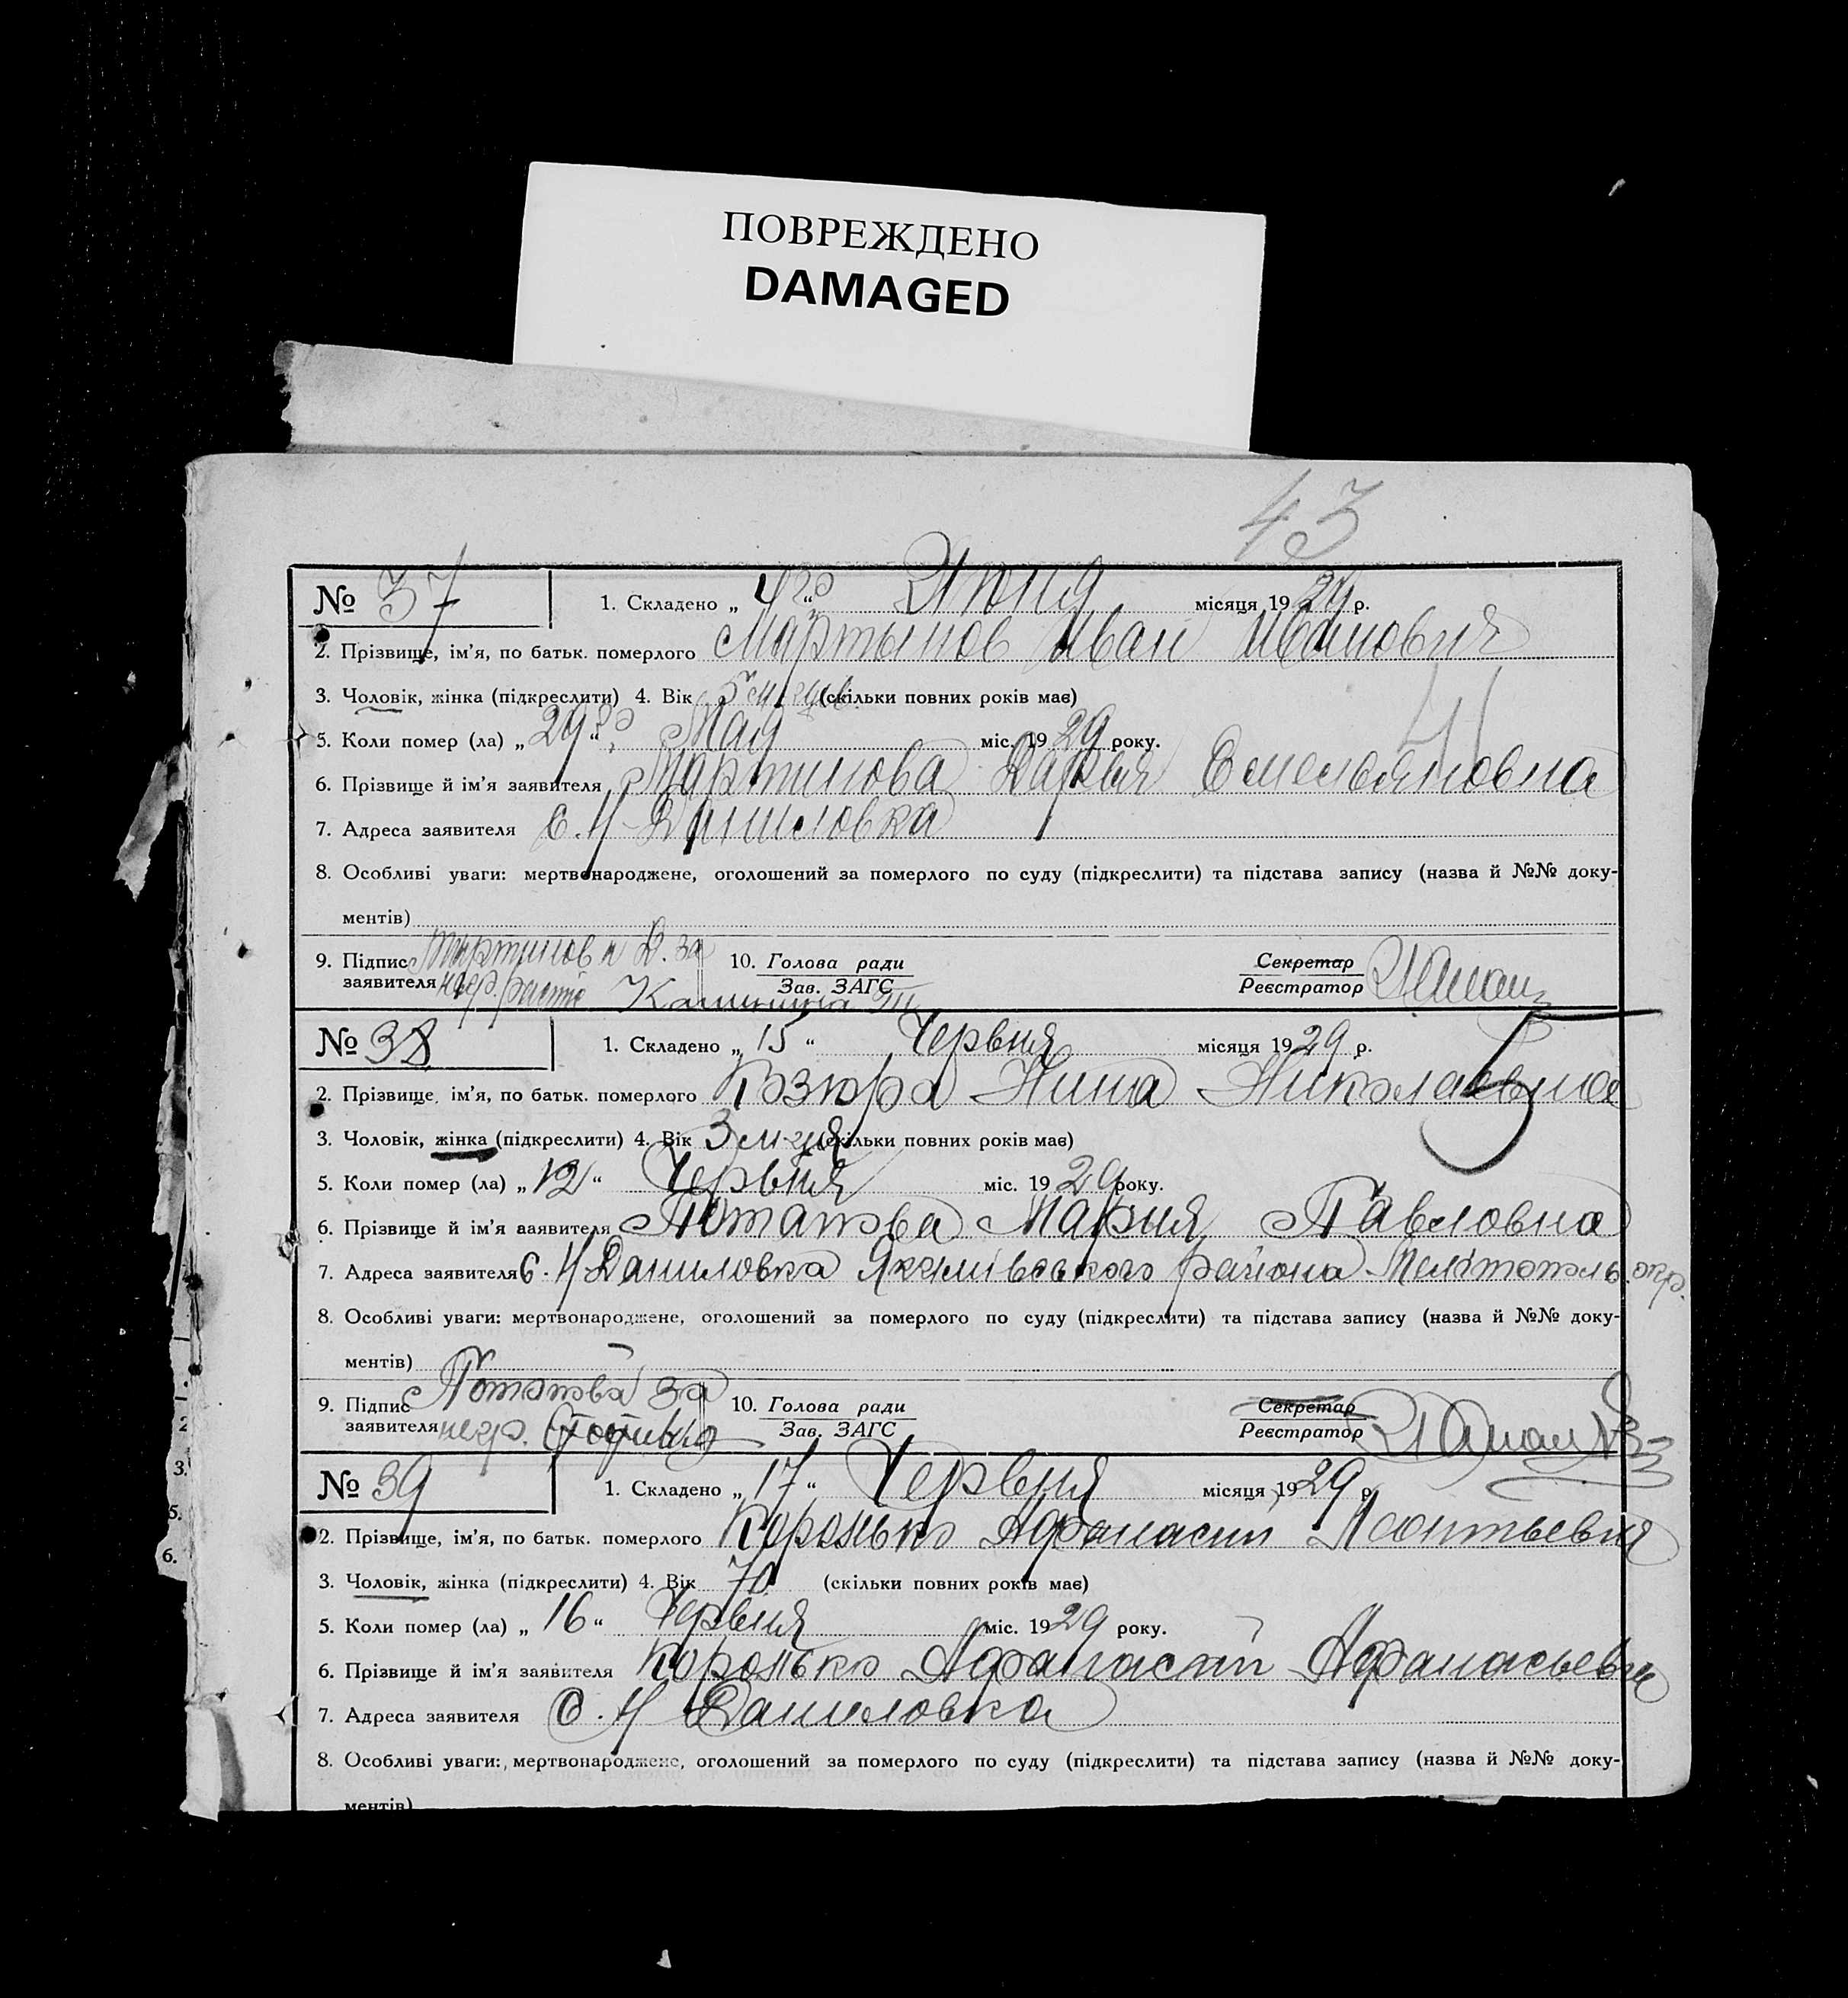 ПОВРЕЖДЕНО
DAMAGED
43
№ 37 1. Складено „ 4го “ Июня місяця 1929 р.
2. Прізвище, ім’я, по батьк. померлого Мартынов Иван Иванович
3. Чоловік, жінка (підкреслити) 4. Вік 5 (скільки повних років має)
5. Коли помер (ла) „ 29го “ Мая міс. 1929 року.
6. Прізвище й ім’я заявителя Мартинова Дарья Емельяновна
7. Адреса заявителя С. Н Даниловка
8. Особливі уваги: мертвонароджене, оголошений за померлого по суду (підкреслити) та підстава запису (назва й №№ доку-
ментів)
9. Підпис Мартинова Д. за 10. Голова ради Секретар
заявителя Зав. ЗАГС Реєстратор
№ 38 1. Складено „ 15 “ Червня місяця 1929 р.
2. Прізвище, ім’я, по батьк. померлого Кзюра Нина Николаевна
3. Чоловік, жінка (підкреслити) 4. Вік 3 м-ця (скільки повних років має)
5. Коли помер (ла) „ 12 “ Червня міс. 1929 року.
6. Прізвище й ім’я заявителя Потапова Мария Павловна
7. Адреса заявителя С. Н Даниловка Якимівського района Мелітополь. окр.
8. Особливі уваги: мертвонароджене, оголошений за померлого по суду (підкреслити) та підстава запису (назва й №№ доку-
ментів)
9. Підпис Потапова за 10. Голова ради Секретар
заявителя негр. Зав. ЗАГС Реєстратор
№ 39 1. Складено „ 17 “ Червня місяця 1929 р.
2. Прізвище, ім’я, по батьк. померлого Коронько Афанасий Леонтьевич
3. Чоловік, жінка (підкреслити) 4. Вік 70 (скільки повних років має)
5. Коли помер (ла) „ 16 “ Червня міс. 1929 року.
6. Прізвище й ім’я заявителя Коронько Афанасий Афанасьевич
7. Адреса заявителя С. Н Даниловка
8. Особливі уваги: мертвонароджене, оголошений за померлого по суду (підкреслити) та підстава запису (назва й №№ доку-
ментів)